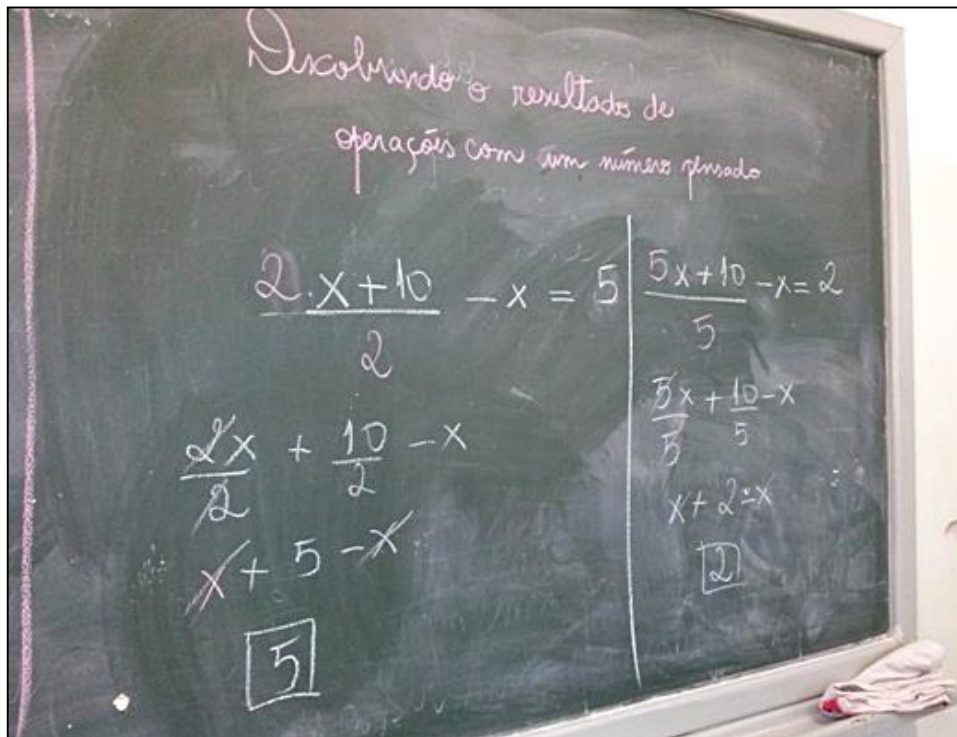 Descobrindo o resultado de
operações com um número pensado
2.x+10
2
- x = 5
2x/2 + 10/2 - x
x + 5 - x
5
5x+10
5
-x= 2
5x/5 + 10/5 - x
x + 2 - x
2